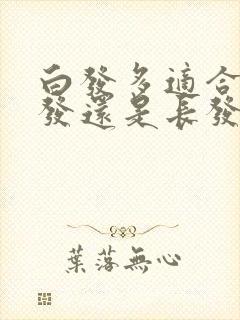 白發多適合
發還是長發
葉落無心